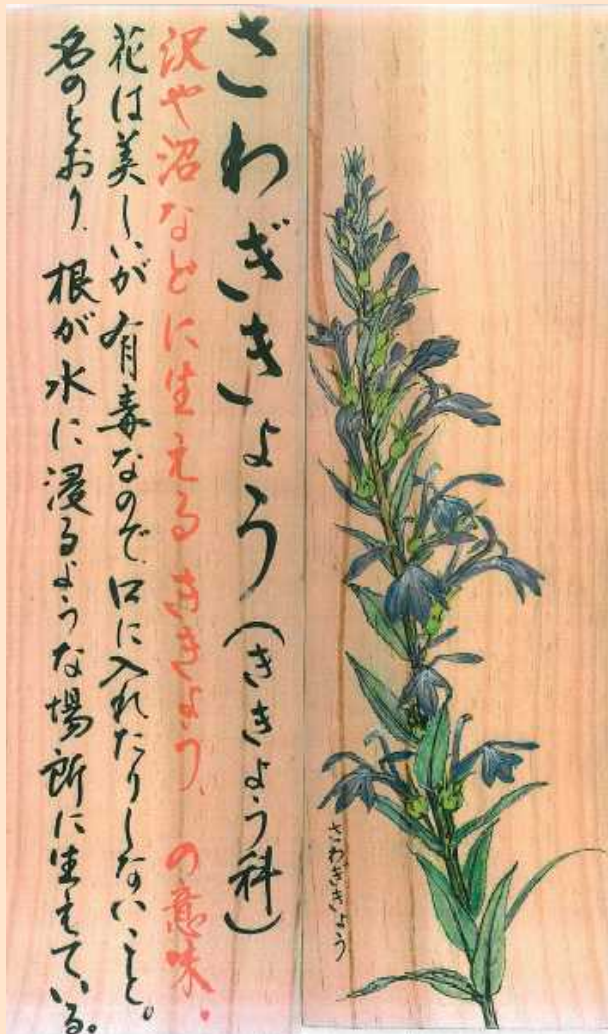 さわぎきょう(ききょう科)
沢や沼などに生えるききょう、の意味.
花は美しいが有毒なので、口に入れたりしないこと。
名のとおり、根が水に浸るような場所に生えている。
さわぎきょう